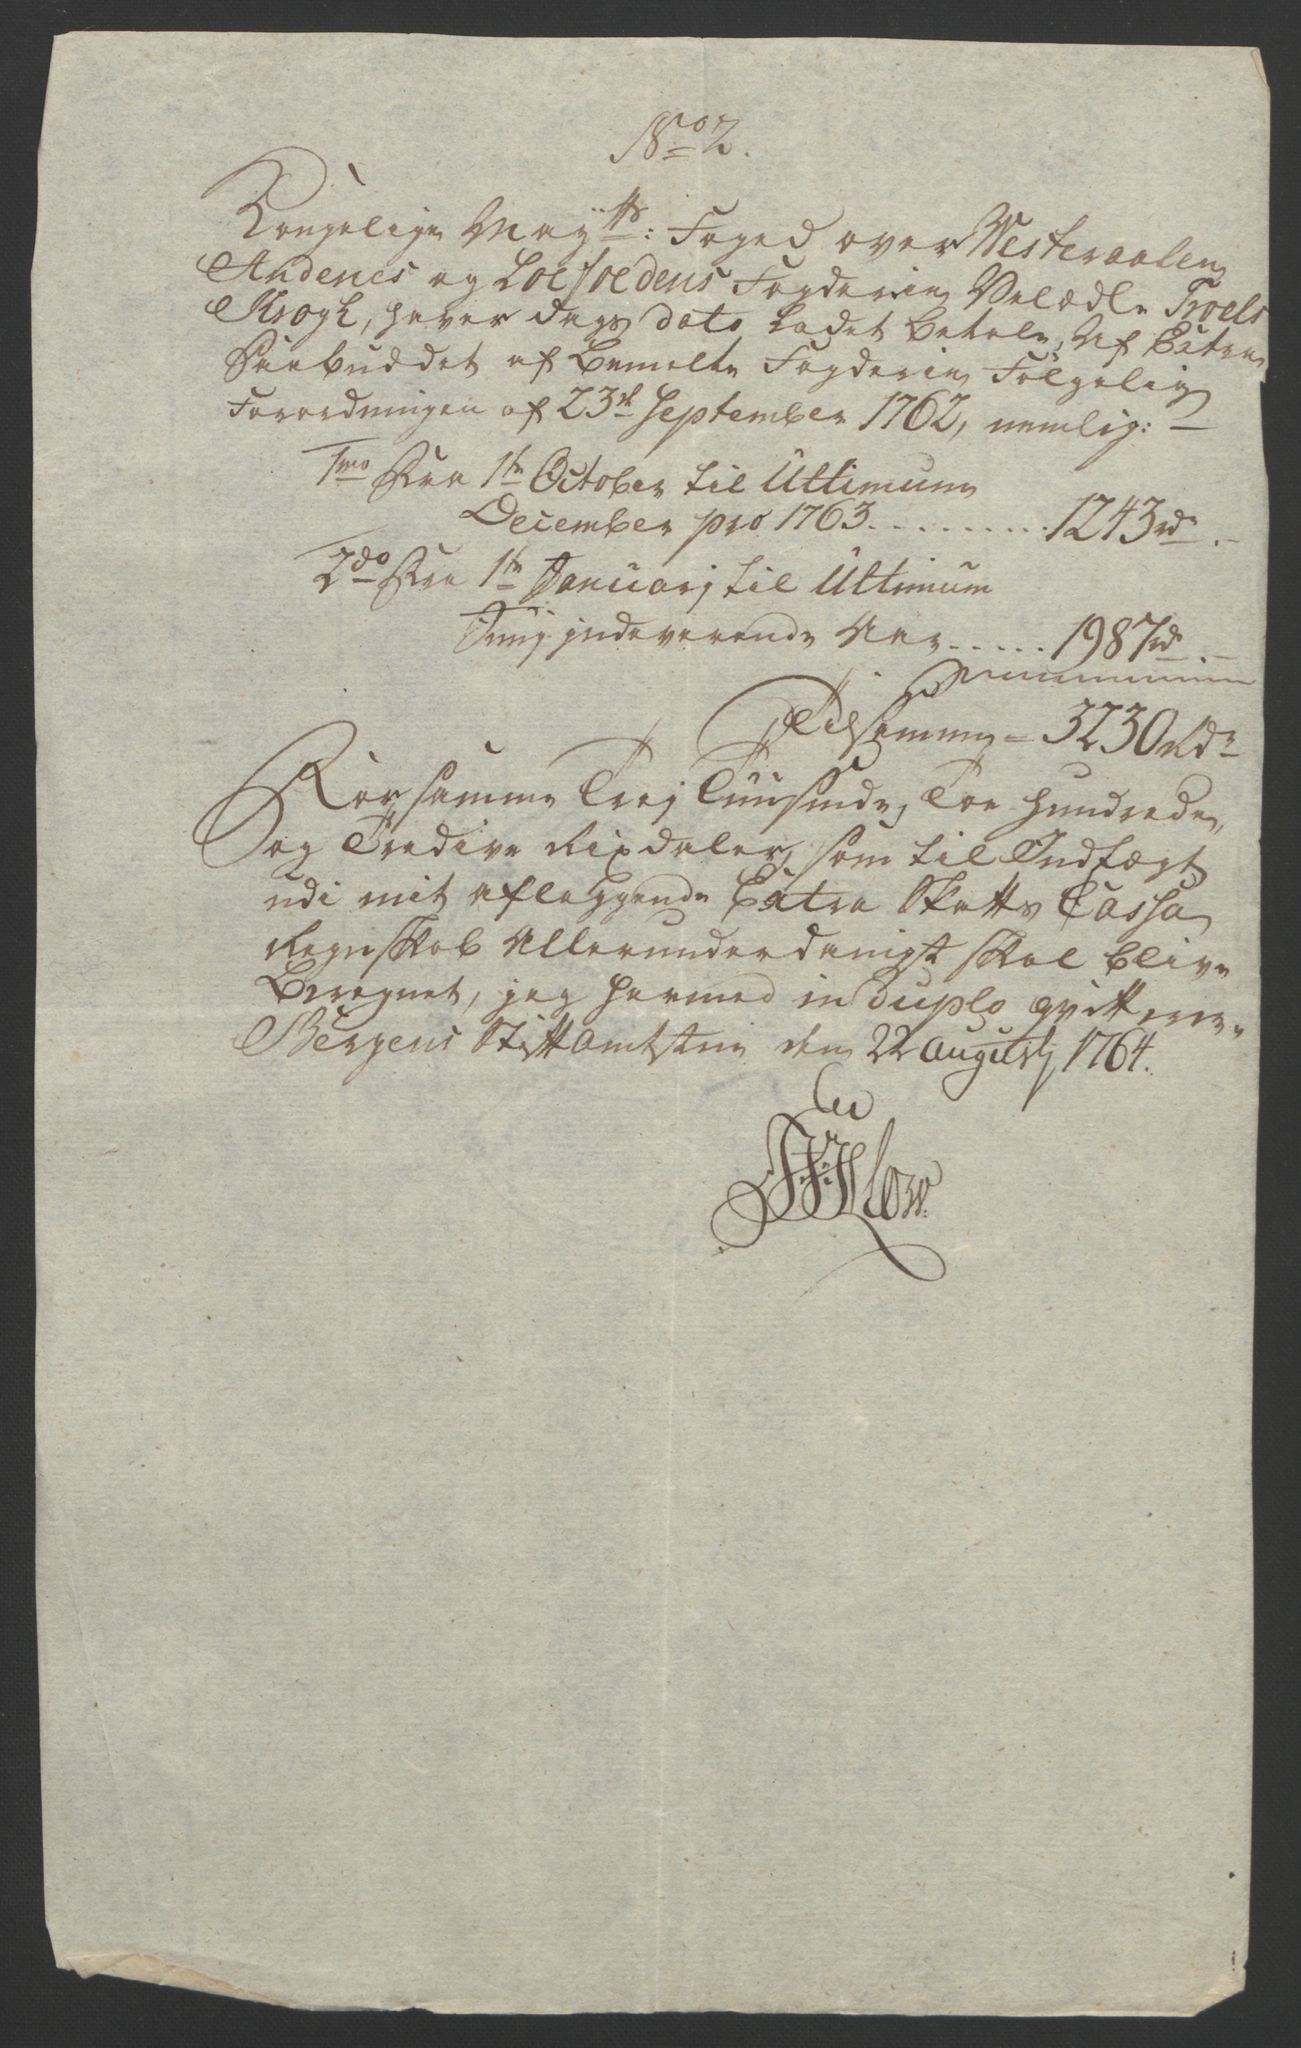 No 2.
Kongelige Mayts: Foged over Westeraalen
Andenes og Loefoedens Fogderie Velædle Troels
Krogh, haver dags dato ladet betale, Af Extra
Paabuddet af bemelte Fogderie Følgelig
Forordningen af 23de September 1762, nemlig:
1mo Fra 1te October til Ultimum
December pro 1763 . . . . . . . . . . 1243 rd .-
2do Fra 1te Januarj til Ultimum
Junij indeværende Aar . . . . . 1987 rd .-
Tilsammen = 3230 Rdr
For samme Trej Tuusinde, Toe hundrede,
og Tredive Rixdaler, som til Indtægt
udi mit aflæggende Extra Skatts Cassa
Regnskab Allerunderdanigst skal blive
Beregnet, jeg hermed in duplo qvitterer.
Bergens Stiftamtstue den 22 Augustj 1764.
Low.